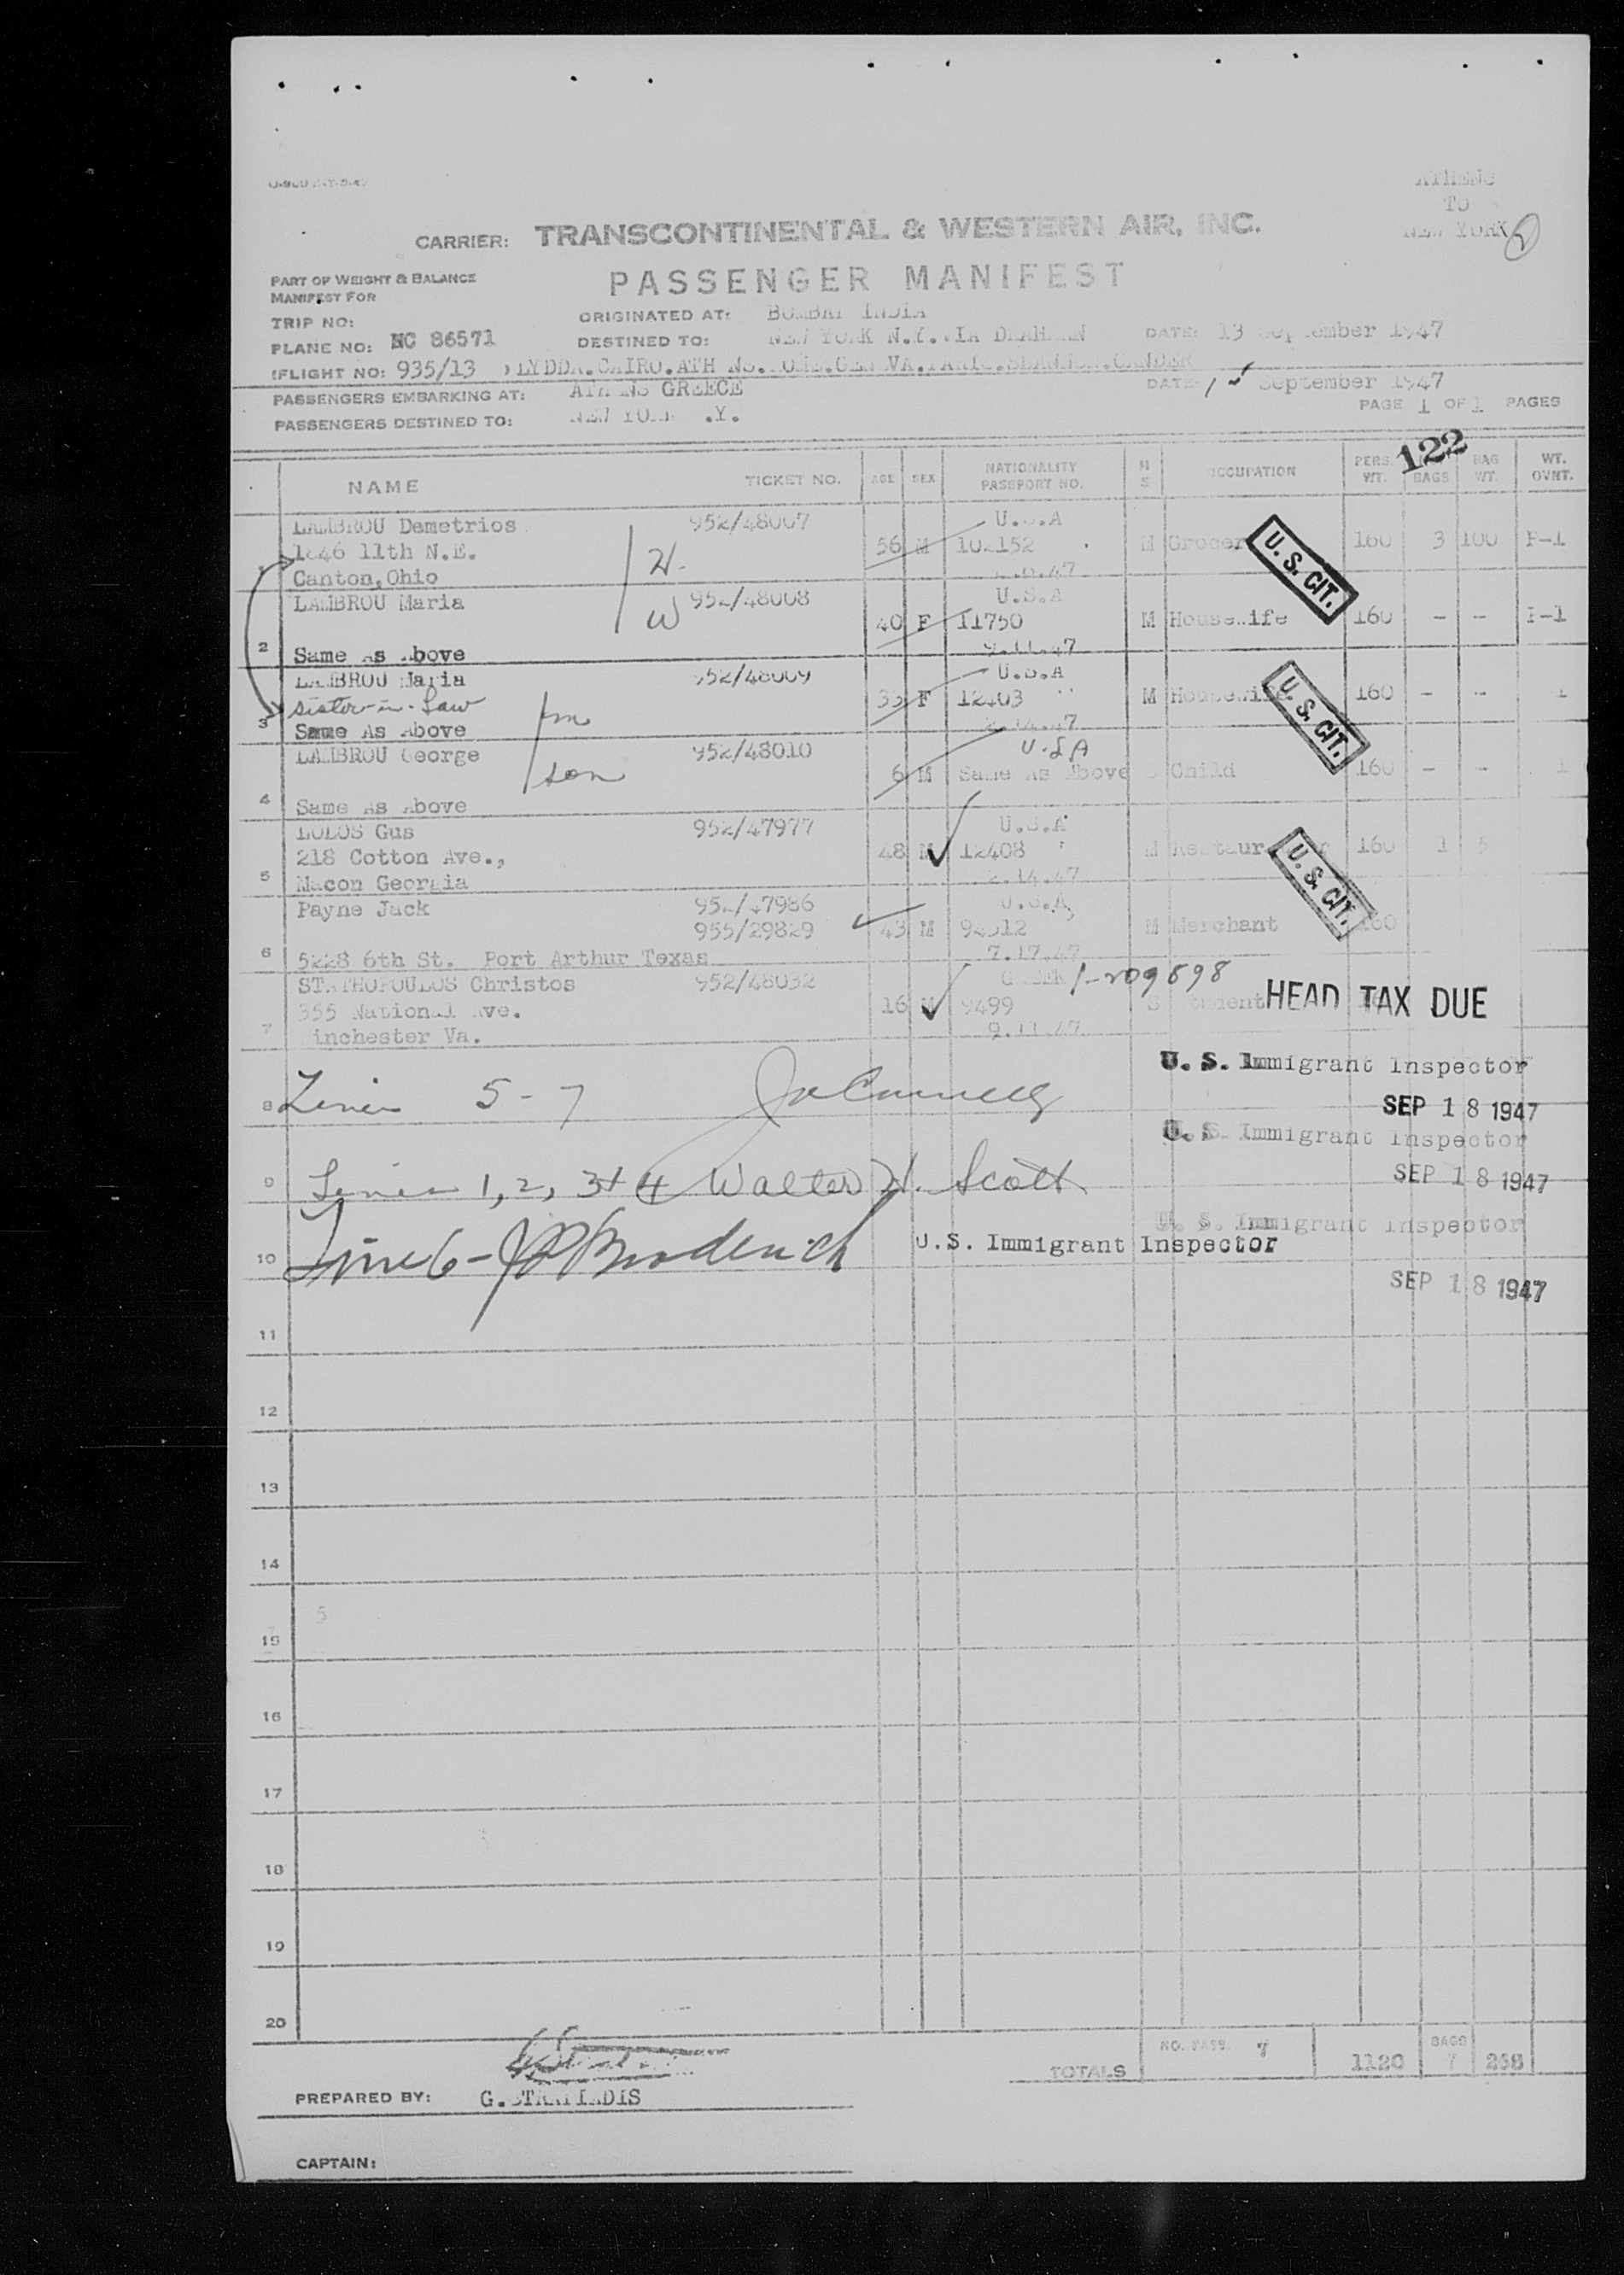 ATHENS
TO
NEW YORK
CARRIER: TRANSCONTINENTAL & WESTERN AIR, INC.
PART OF WEIGHT & BALANCE
MANIFEST FOR
PASSENGER MANIFEST
TRIP NO:
ORIGINATED AT: BOMBAY INDIA
PLANE NO: NC 86571
DESTINED TO: NEW YORK N.Y. VIA
DATE: 13 September 1947
FLIGHT NO: 935/13 LYDDA.CAIRO.
PASSENGERS EMBARKING AT: ATHENS GREECE
DATE September 1947
PASSENGERS DESTINED TO: NEW YORK N.Y.
PAGE 1 OF 1 PAGES
122
NAME TICKET NO. AGE SEX NATIONALITY PASSPORT NO. M S OCCUPATION PERS. WT. BAGS BAG WT. WT. OVHT.
LAMBROU Demetrios 952/48007 U.S.A
1846 11th N.E. H. 56 M M Grocer U. S. CIT. 160 3 100 P-1
Canton, Ohio
LAMBROU Maria W 952/48008 U.S.A
40 F 11750 M Housewife 160 - - P-1
2 Same As Above 9.11.47
LAMBROU Maria 952/48009 U.S.A
sister-in-Law m F 12403 M Housewife U. S. CIT. 160 - - 1
3 Same As Above 2.14.47
LAMBROU George 952/48010 U.S.A
son 6 M Same As Above Child 160 - - 1
4 Same As Above
LOLOS Gus 952/47977 U.S.A
218 Cotton Ave., 48 M 12408 M U. S. CIT. 160 1
5 Macon Georgia 2.14.47
Payne Jack 952/47986 U.S.A
955/29829 43 M M Merchant 160
6 5228 6th St. Port Arthur Texas 7.17.47
STATHOPOULOS Christos 952/48032 GREEK
355 National Ave. 16 M 9499 S Student HEAD TAX DUE
7 Winchester Va. 9.11.47
U. S. Immigrant Inspector
8 Lines 5-7
SEP 18 1947
U. S. Immigrant Inspector
9 Lines 1, 2, 3 + 4 Walter H. Scott
SEP 18 1947
U. S. Immigrant Inspector
10 Line 6 - Broderick U.S. Immigrant Inspector
SEP 18 1947
11
12
13
14
15
16
17
18
19
20
TOTALS NO. PASS. 7 1120 BAGS 7 268
PREPARED BY: G. STRATIADIS
CAPTAIN: